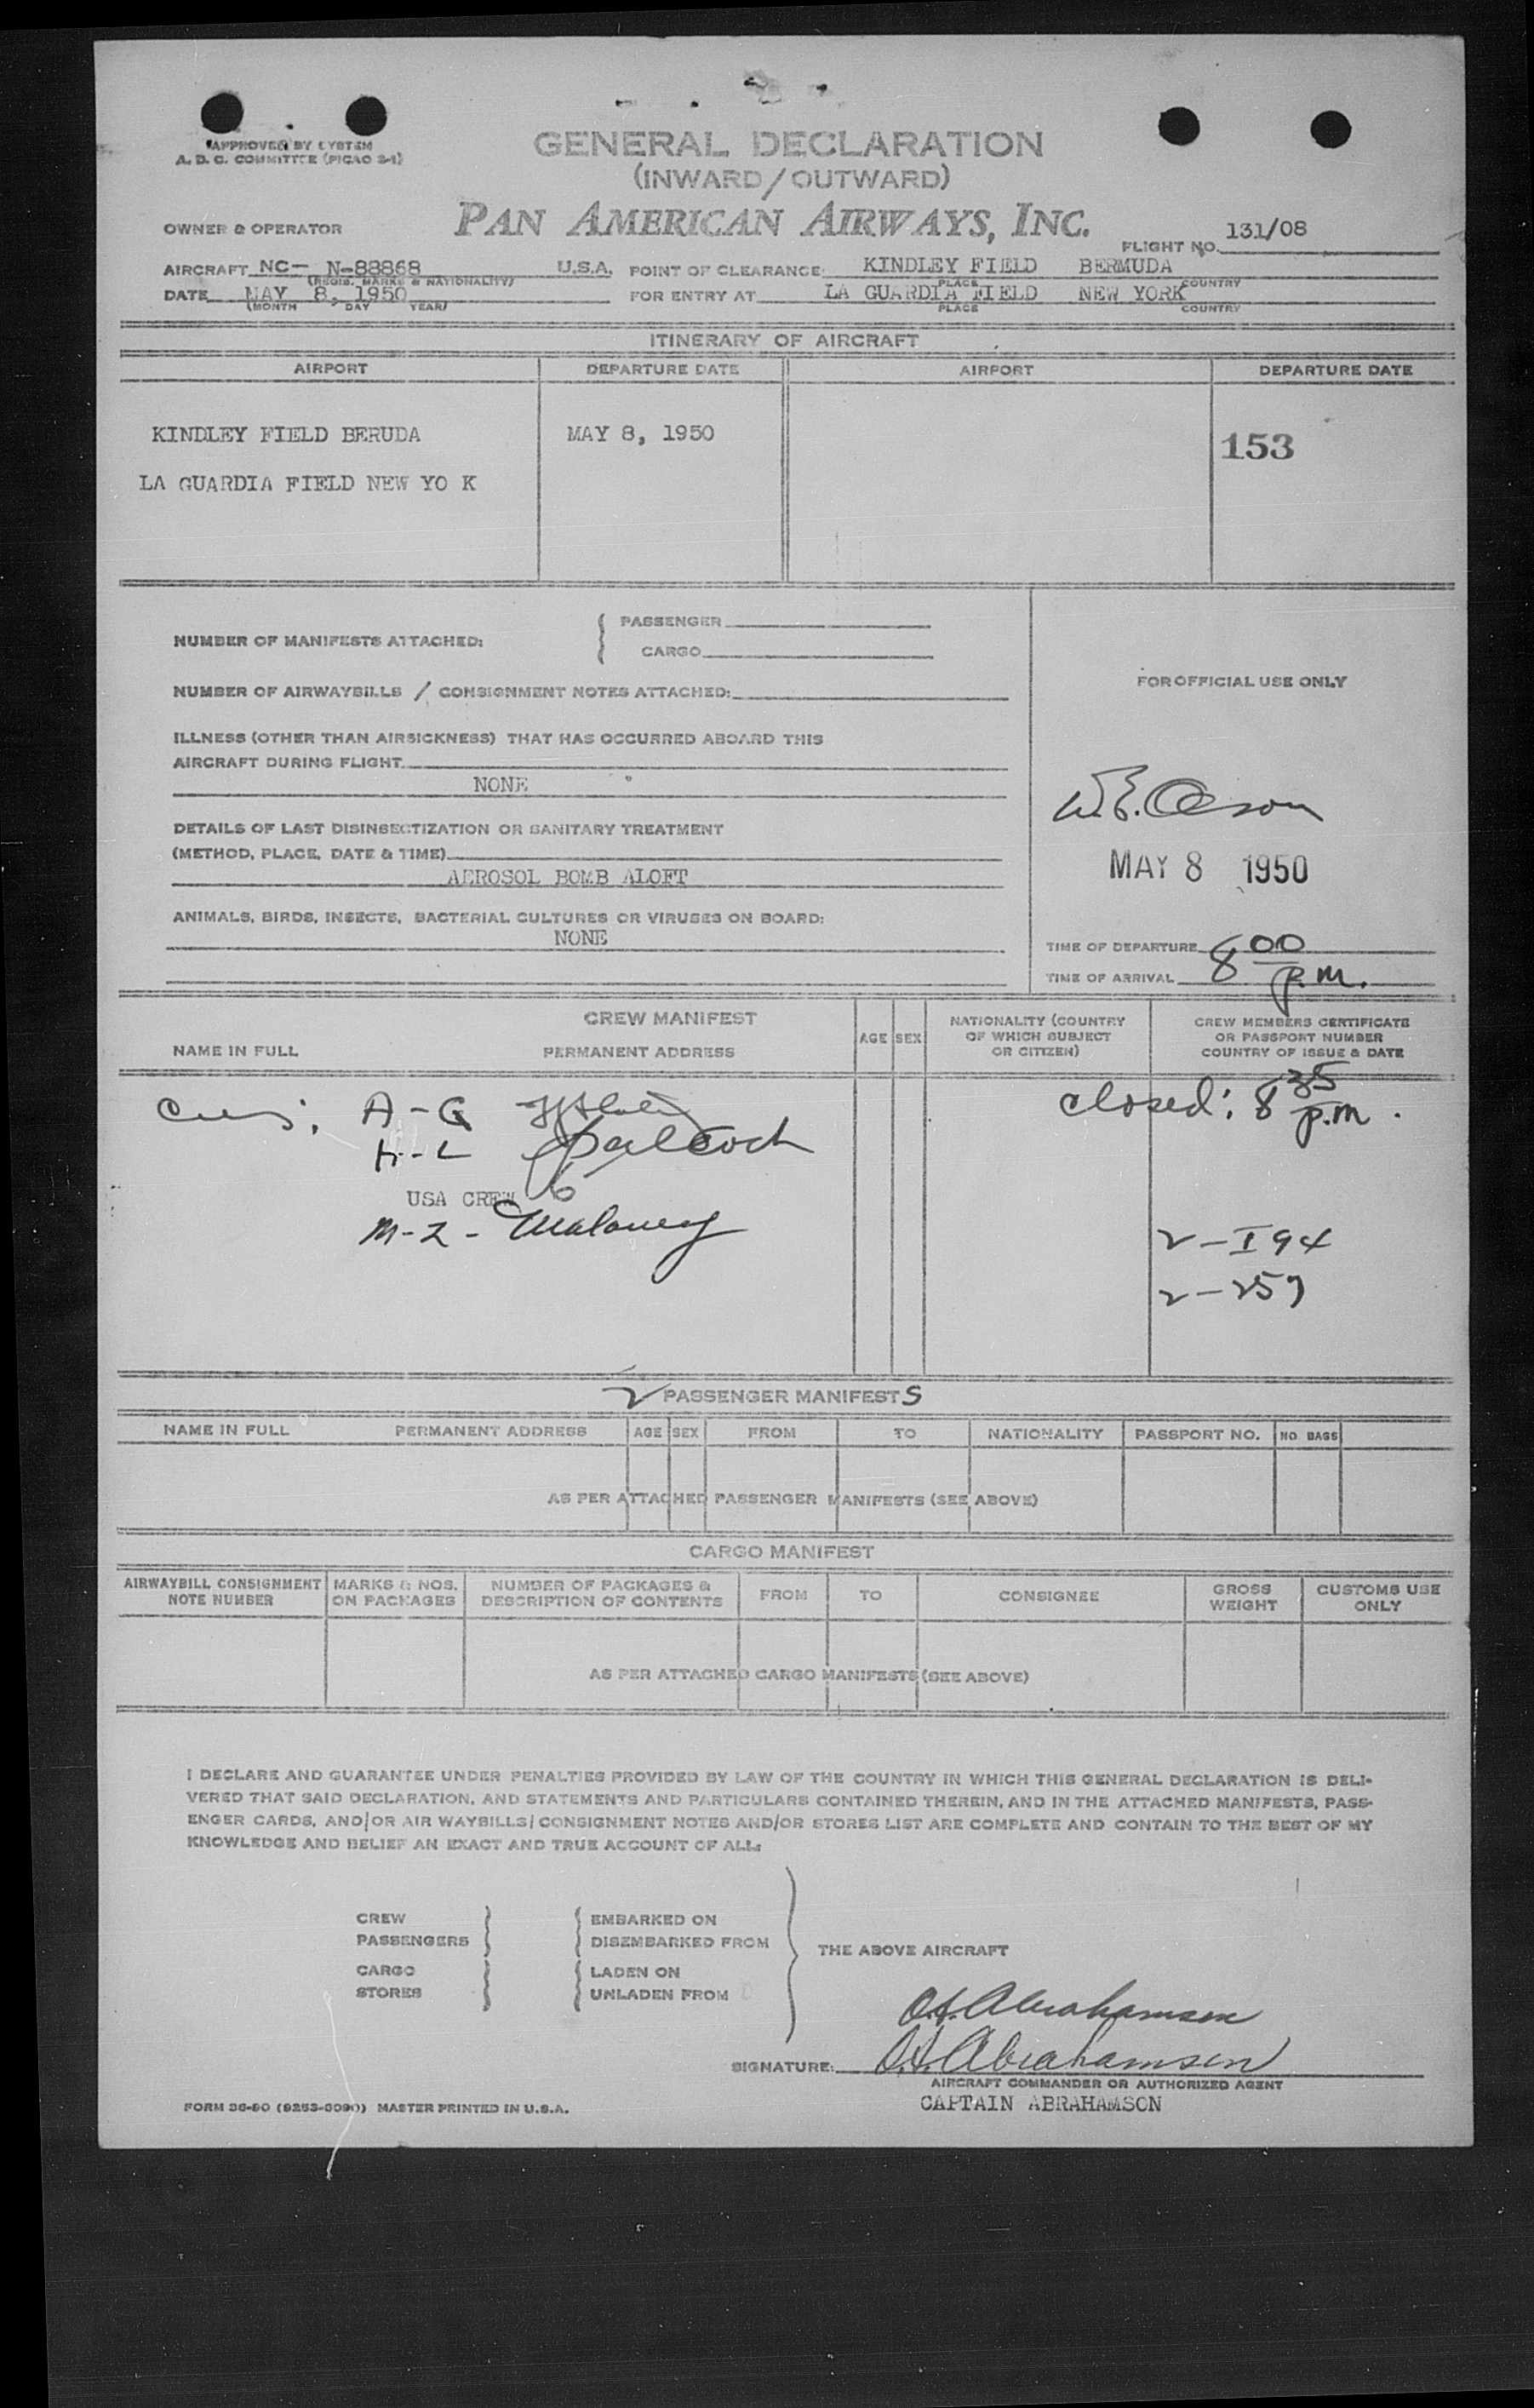 APPROVED BY SYSTEM
A. D. C. COMMITTEE (PICAO 2-1)
GENERAL DECLARATION
(INWARD/OUTWARD)
OWNER & OPERATOR
PAN AMERICAN AIRWAYS, INC.
FLIGHT NO. 131/08
AIRCRAFT NC- N-88868 U.S.A. POINT OF CLEARANCE: KINDLEY FIELD BERMUDA
(REGIS. MARKS & NATIONALITY) PLACE COUNTRY
DATE MAY 8, 1950 FOR ENTRY AT LA GUARDIA FIELD NEW YORK
(MONTH DAY YEAR) PLACE COUNTRY
ITINERARY OF AIRCRAFT
AIRPORT DEPARTURE DATE AIRPORT DEPARTURE DATE
KINDLEY FIELD BERUDA MAY 8, 1950 153
LA GUARDIA FIELD NEW YO K
NUMBER OF MANIFESTS ATTACHED: { PASSENGER
CARGO
NUMBER OF AIRWAYBILLS / CONSIGNMENT NOTES ATTACHED:
FOR OFFICIAL USE ONLY
ILLNESS (OTHER THAN AIRSICKNESS) THAT HAS OCCURRED ABOARD THIS
AIRCRAFT DURING FLIGHT
NONE
DETAILS OF LAST DISINSECTIZATION OR SANITARY TREATMENT
(METHOD, PLACE, DATE & TIME)
AEROSOL BOMB ALOFT
W.E. Olson
MAY 8 1950
ANIMALS, BIRDS, INSECTS, BACTERIAL CULTURES OR VIRUSES ON BOARD:
NONE
TIME OF DEPARTURE
TIME OF ARRIVAL 8 00 p.m.
CREW MANIFEST
NAME IN FULL PERMANENT ADDRESS AGE SEX NATIONALITY (COUNTRY OF WHICH SUBJECT OR CITIZEN) CREW MEMBERS CERTIFICATE OR PASSPORT NUMBER COUNTRY OF ISSUE & DATE
A-G closed: 8 35 p.m.
H-L
USA CREW 6
M-Z - Maloney
2 - I 94
2 - 257
2 PASSENGER MANIFESTS
NAME IN FULL PERMANENT ADDRESS AGE SEX FROM TO NATIONALITY PASSPORT NO. NO. BAGS
AS PER ATTACHED PASSENGER MANIFESTS (SEE ABOVE)
CARGO MANIFEST
AIRWAYBILL CONSIGNMENT NOTE NUMBER MARKS & NOS. ON PACKAGES NUMBER OF PACKAGES & DESCRIPTION OF CONTENTS FROM TO CONSIGNEE GROSS WEIGHT CUSTOMS USE ONLY
AS PER ATTACHED CARGO MANIFESTS (SEE ABOVE)
I DECLARE AND GUARANTEE UNDER PENALTIES PROVIDED BY LAW OF THE COUNTRY IN WHICH THIS GENERAL DECLARATION IS DELI-
VERED THAT SAID DECLARATION, AND STATEMENTS AND PARTICULARS CONTAINED THEREIN, AND IN THE ATTACHED MANIFESTS, PASS-
ENGER CARDS, AND/OR AIR WAYBILLS/CONSIGNMENT NOTES AND/OR STORES LIST ARE COMPLETE AND CONTAIN TO THE BEST OF MY
KNOWLEDGE AND BELIEF AN EXACT AND TRUE ACCOUNT OF ALL:
CREW EMBARKED ON
PASSENGERS DISEMBARKED FROM
THE ABOVE AIRCRAFT
CARGO LADEN ON
STORES UNLADEN FROM
O.A. Abrahamsen
SIGNATURE: O.A. Abrahamsen
AIRCRAFT COMMANDER OR AUTHORIZED AGENT
CAPTAIN ABRAHAMSON
FORM 36-90 (9253-5090) MASTER PRINTED IN U.S.A.